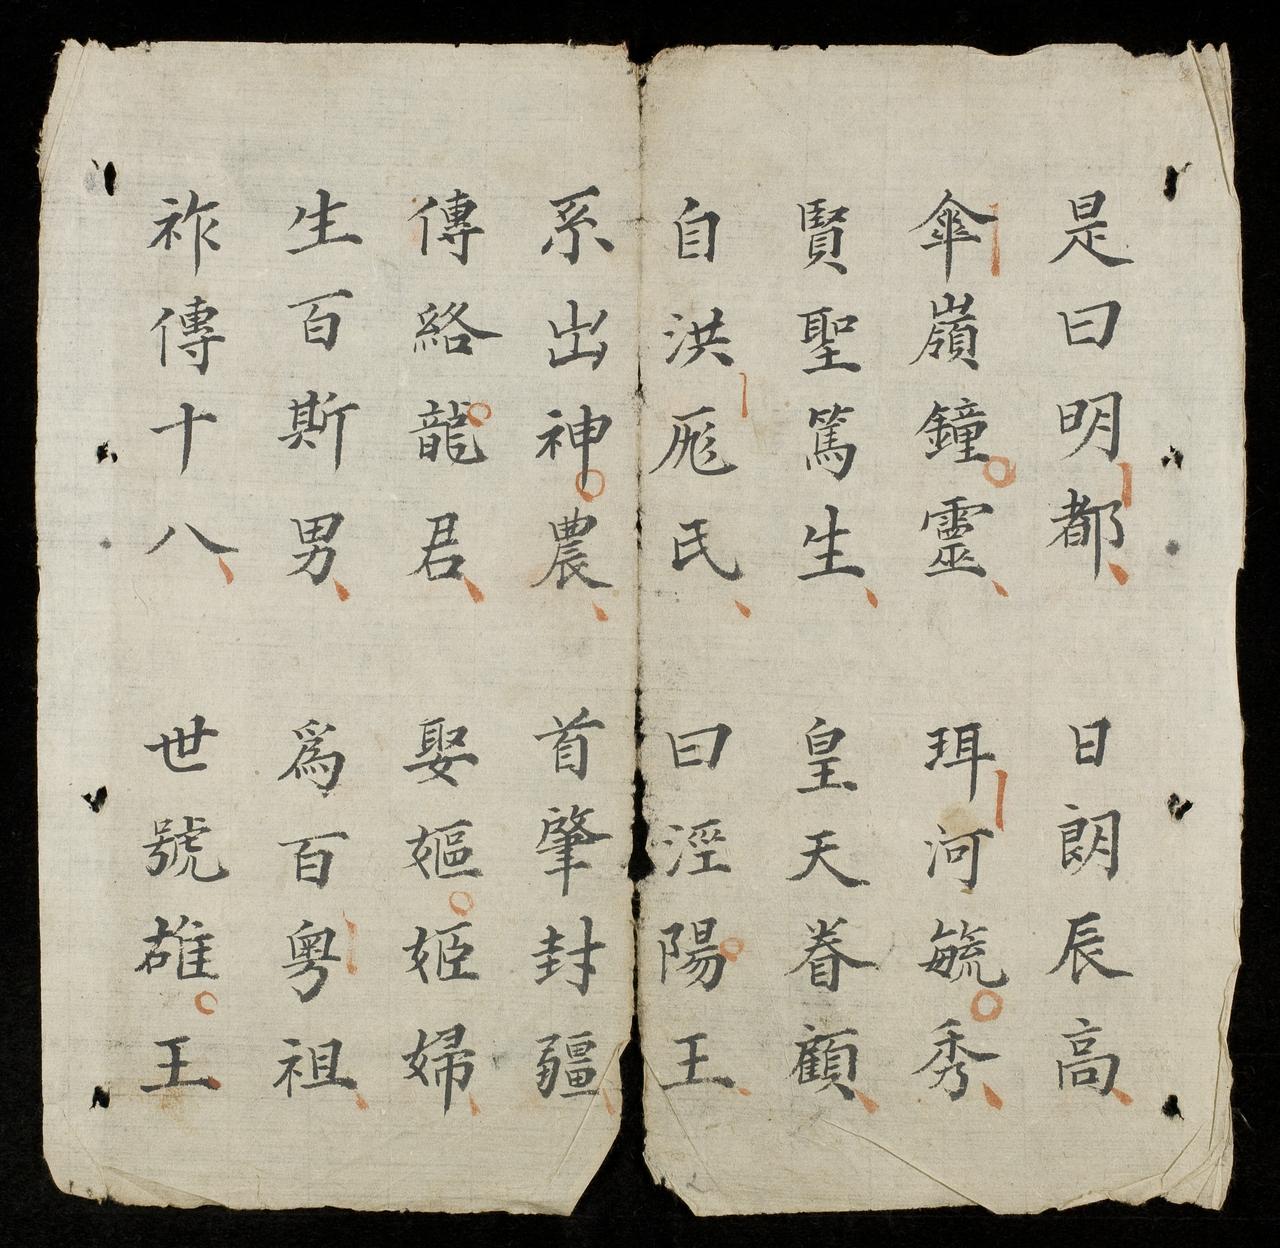 是曰明都 日朗辰高
傘嶺鐘靈 珥河毓秀
賢聖篤生 皇天眷顧
自洪厖氏 曰涇陽王
系出神農 首肇封疆
傳絡龍君 娶嫗姬婦
生百斯男 爲百粵祖
祚傳十八 世號雄王